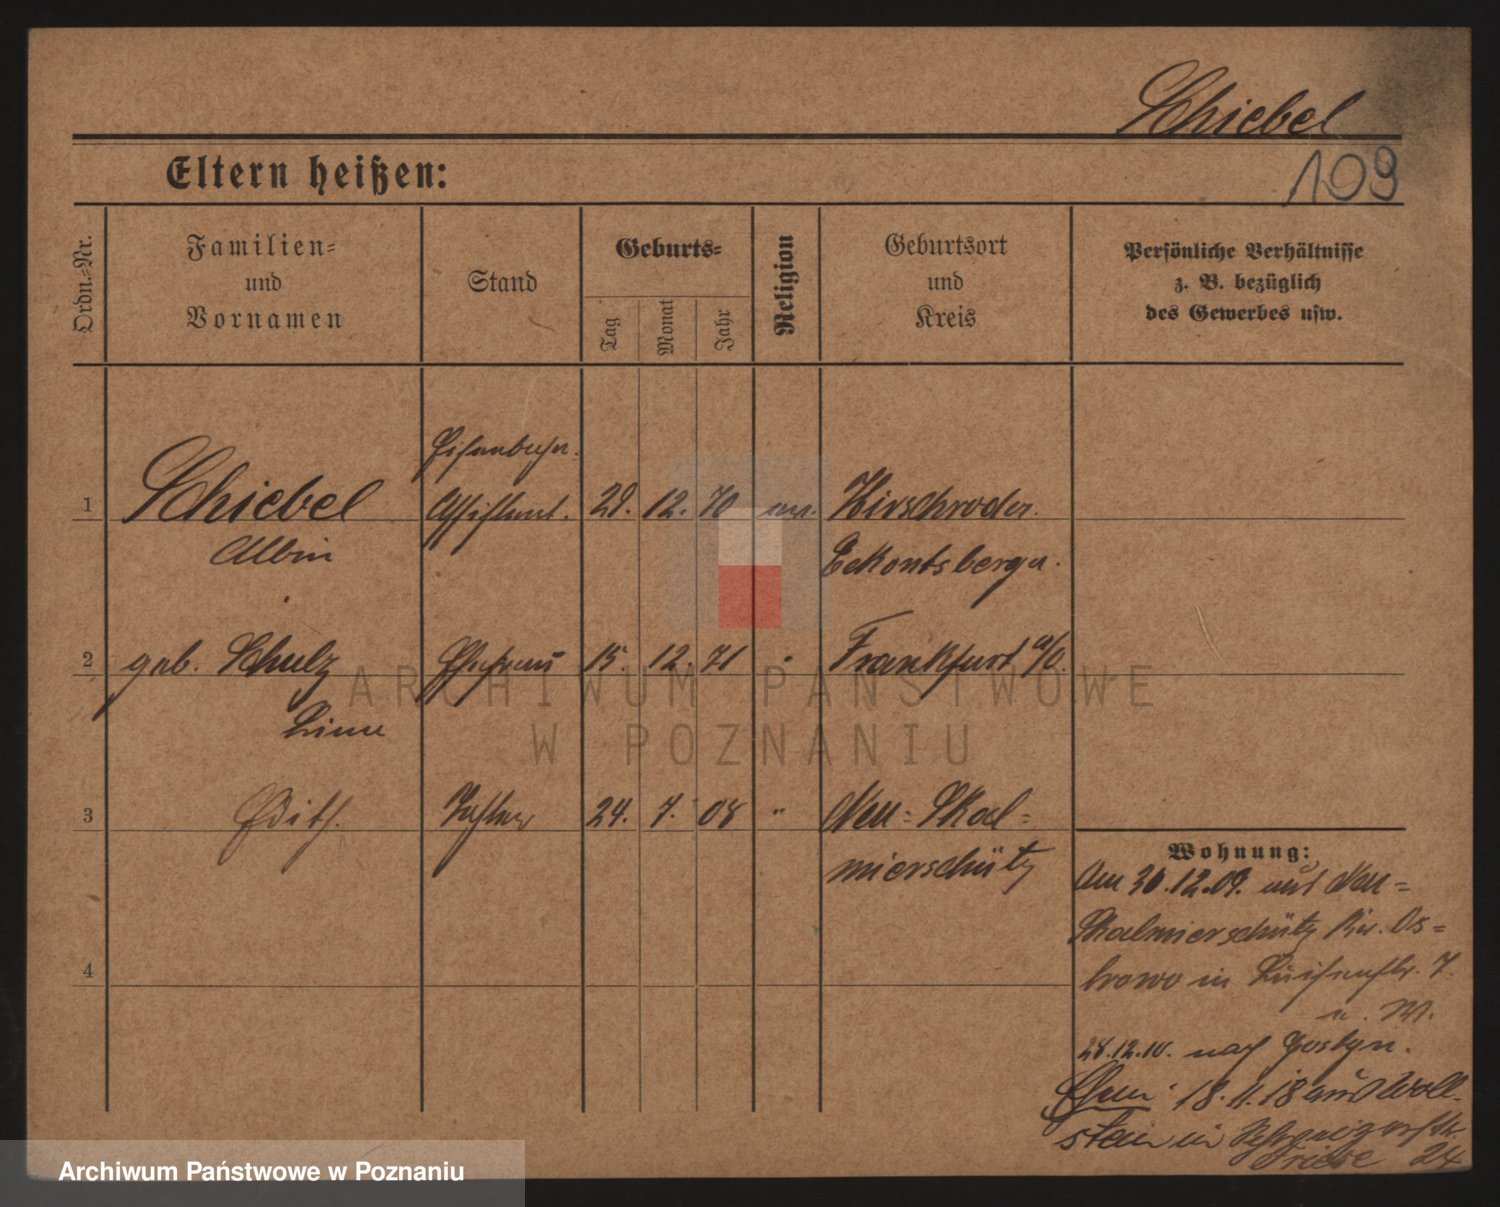 Schiebel
109
Eltern heißen:
Ordn.-Nr.
Familien-
und
Vornamen
Stand
Geburts-
Tag
Monat
Jahr
Religion
Geburtsort
und
Kreis
Persönliche Verhältnisse
z. B. bezüglich
des Gewerbes usw.
Eisenbahn-
1 Schiebel Assistent. 28. 12. 70 Hirschroder.
Albin Eckartsberga.
2 geb. Schulz Ehefrau 15. 12. 71 " Frankfurt a/O.
3 Edith. Tochter 24. 7. 08 " Neu-Skal-
mierschütz
4
Wohnung:
Am 30.12.09. aus Neu-
Skalmierschütz Kr. Os-
trowo in Luisenstr. 7.
28.12.10. nach Gostyn.
18.11.18 aus Woll-
stein in
24
ARCHIWUM PAŃSTWOWE
W POZNANIU
Archiwum Państwowe w Poznaniu